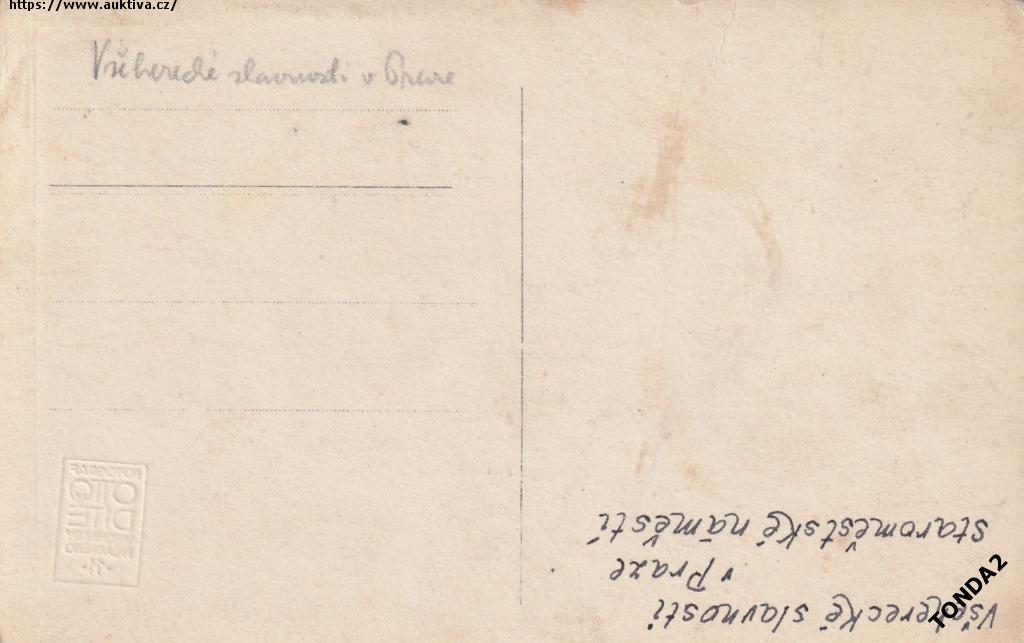 https://www.auktiva.cz/
Všeherecké slavnosti v Praze
Všeherecké slavnosti
v Praze
staroměstské náměstí
FOTOGRAF
OTTO
DÍTĚ
·11·
TONDA2